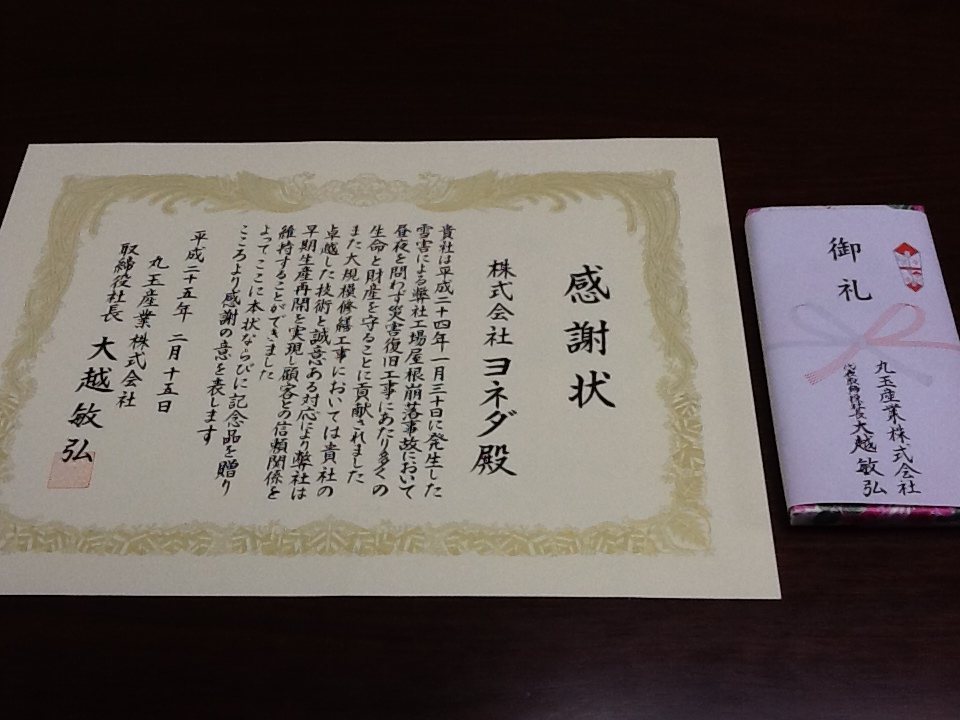 感謝状
株式会社 ヨネダ殿
貴社は平成二十四年一月三十日に発生した
雪害による弊社工場屋根崩落事故において
昼夜を問わず災害復旧工事にあたり多くの
生命と財産を守ることに貢献されました
また大規模修繕工事においては貴社の
卓越した技術と誠意ある対応により弊社は
早期生産再開を実現し顧客との信頼関係を
維持することができました
よってここに本状ならびに記念品を贈り
こころより感謝の意を表します
平成二十五年 二月十五日
丸玉産業株式会社
取締役社長 大越敏弘
御礼
丸玉産業株式会社
代表取締役社長 大越敏弘